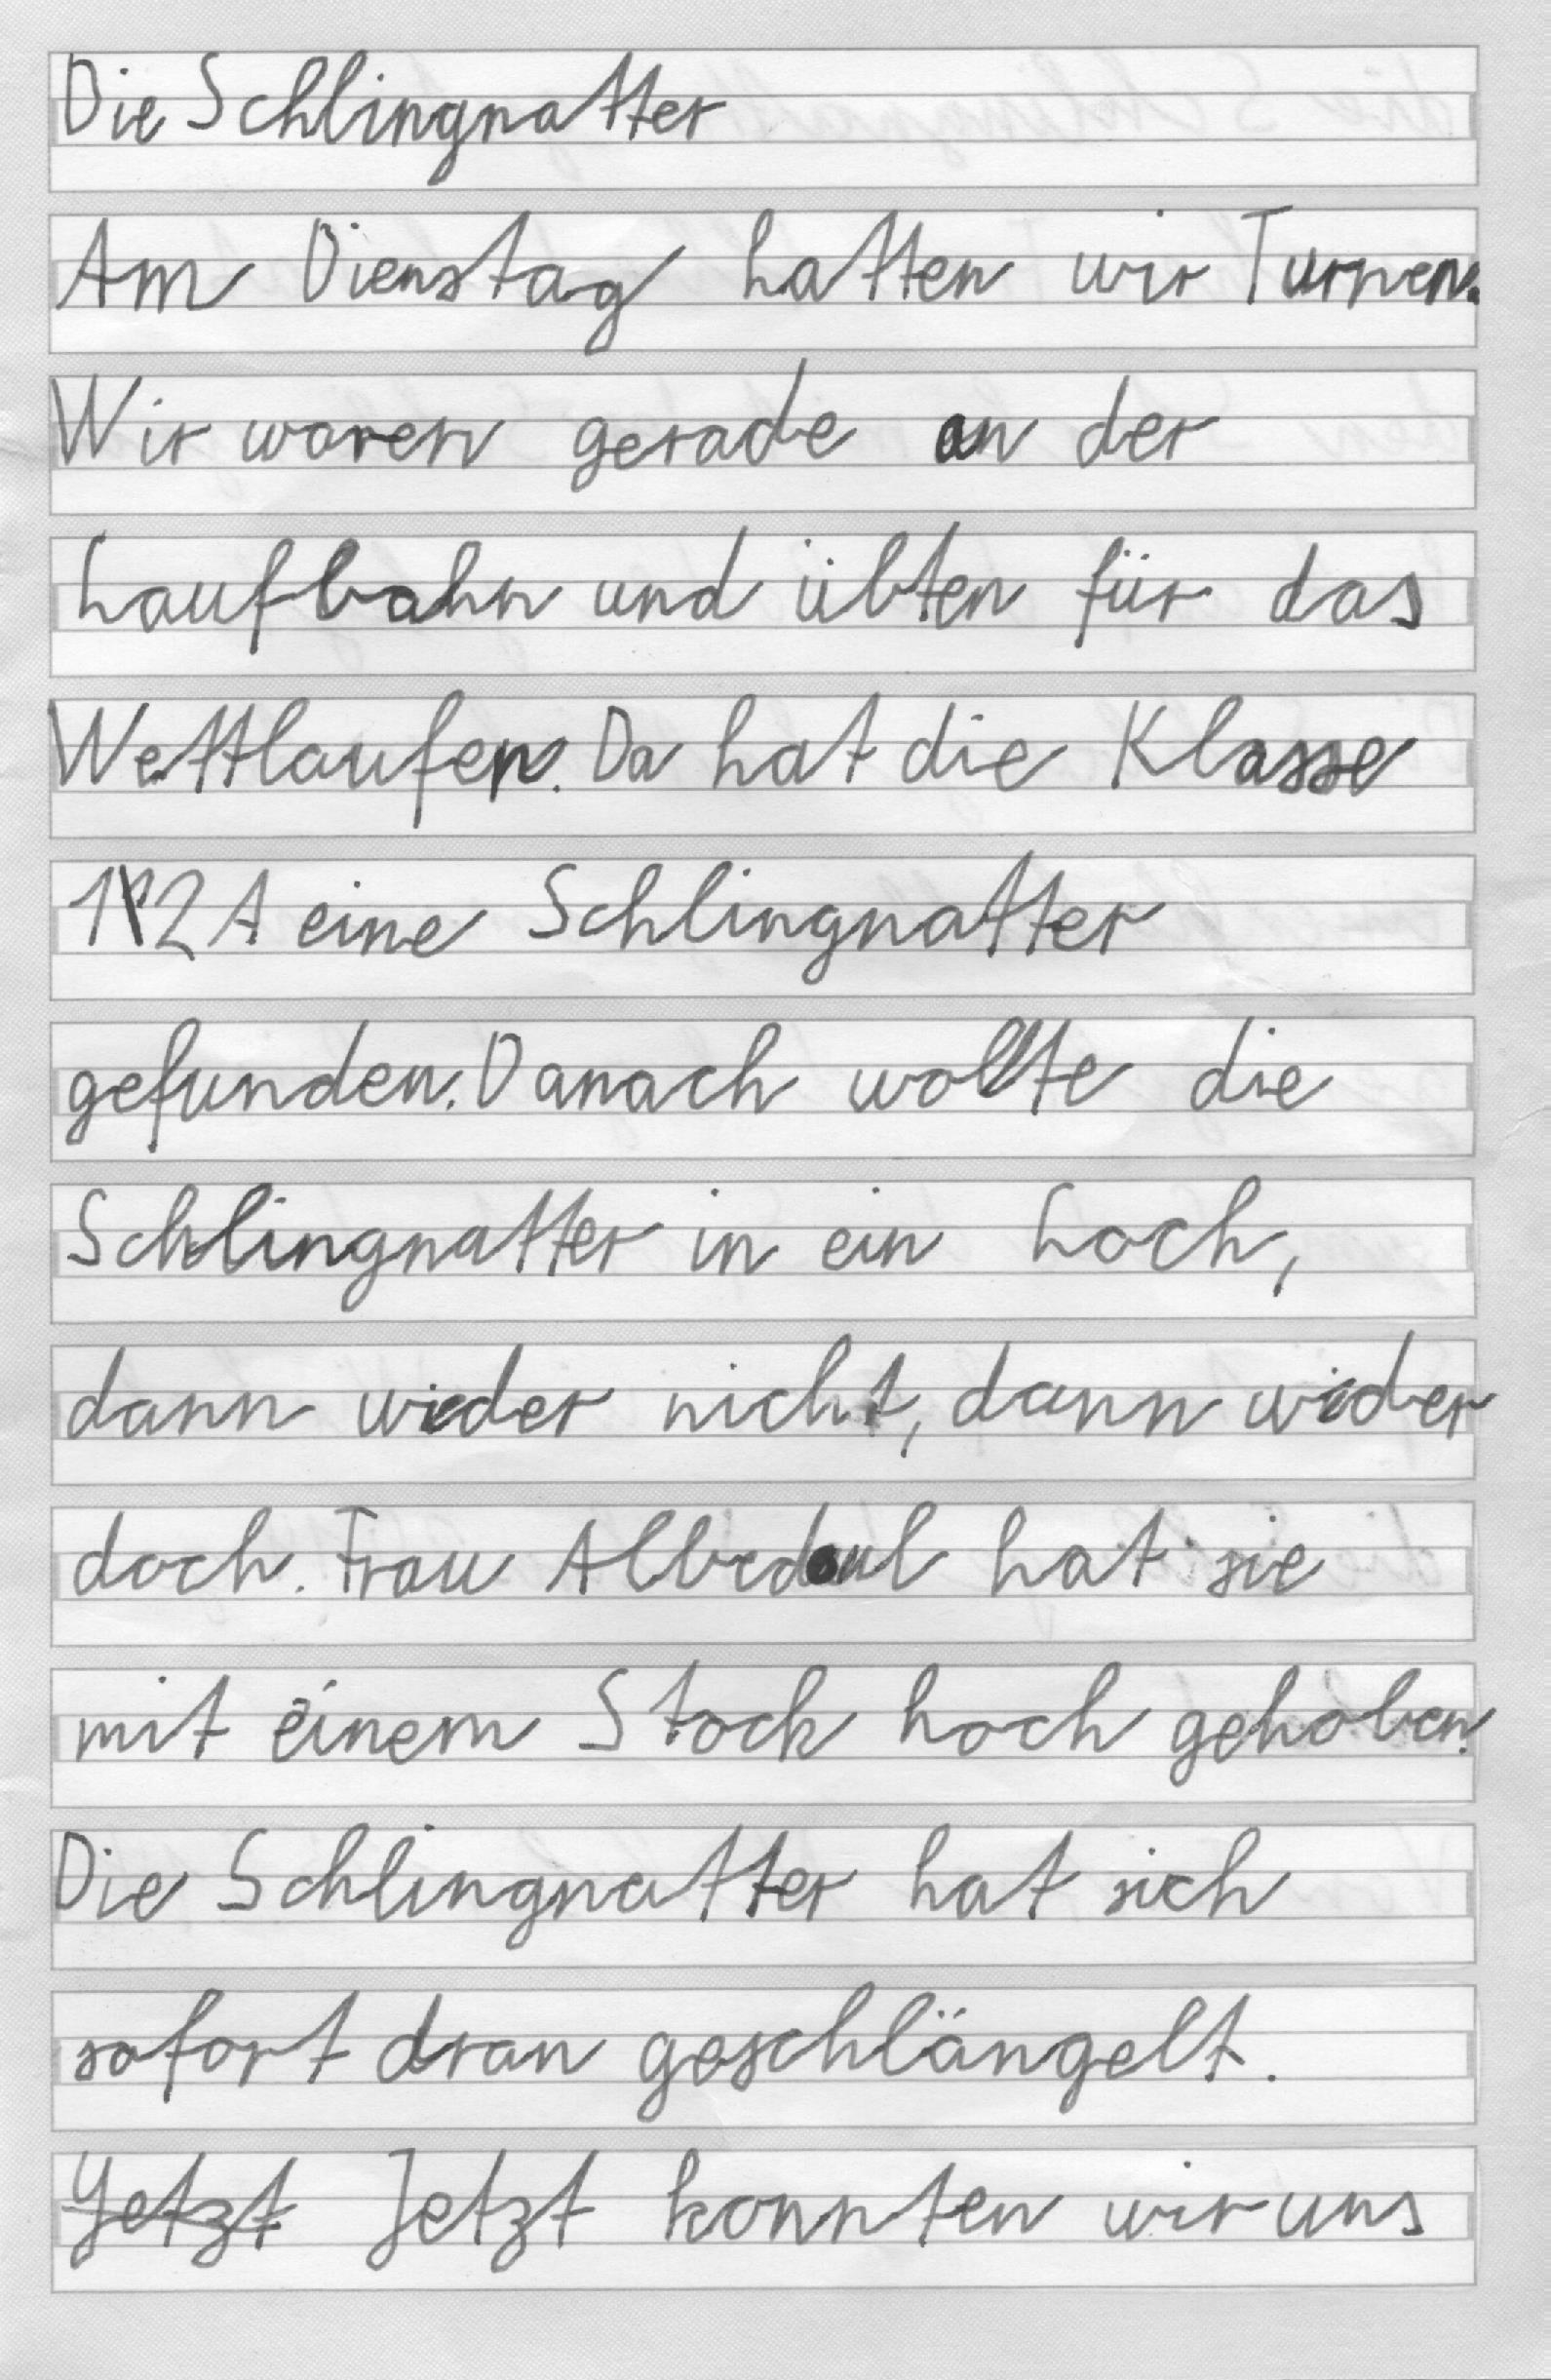 Die Schlingnatter
Am Dienstag hatten wir Turnen.
Wir waren gerade an der
Laufbahn und übten für das
Wettlaufen. Da hat die Klasse
1\2A eine Schlingnatter
gefunden. Danach wollte die
Schlingnatter in ein Loch,
dann wieder nicht, dann wieder
doch. Frau hat sie
mit einem Stock hoch gehoben.
Die Schlingnatter hat sich
sofort dran geschlängelt.
Yetzt Jetzt konnten wir uns